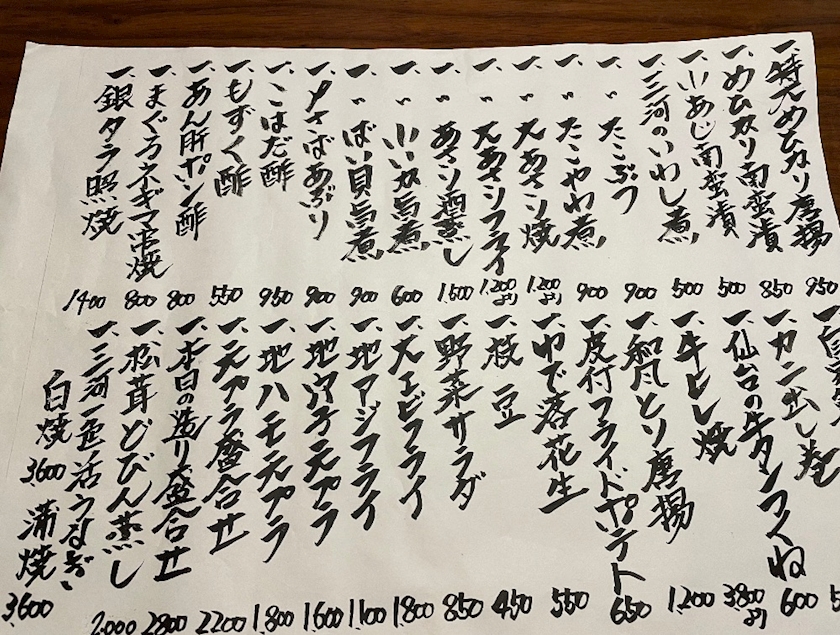 一、特大めひかり唐揚 950
一、めひかり南蛮漬 850
一、小あじ南蛮漬 500
一、三河のいわし煮 500
一、〃 たこぶつ 900
一、〃 たこやわ煮 900
一、〃 大あさり焼 1,200より
一、〃 大あさりフライ 1,200より
一、〃 あさり酒蒸し 1,500
一、〃 小いか旨煮 600
一、〃 ばい貝旨煮 900
一、〆さばあぶり 900
一、こはだ酢 950
一、もずく酢 550
一、あん肝ポン酢 800
一、まぐろネギマ串焼 800
一、銀タラ照焼 1,400
一、カニ出し 600
一、仙台の牛タンつくね 3,800より
一、牛ヒレ焼 1,200
一、和風とり唐揚 650
一、皮付フライドポテト 550
一、ゆで落花生 450
一、枝豆 850
一、野菜サラダ 1,800
一、大エビフライ 1,100
一、地アジフライ 1,600
一、地穴子天プラ 1,800
一、地ハモ天プラ 2,200
一、天プラ盛合せ 2,800
一、本日の造り盛合せ 2,000
一、松茸どびん蒸し
一、三河一色活うなぎ
白焼 3,600
蒲焼 3,600